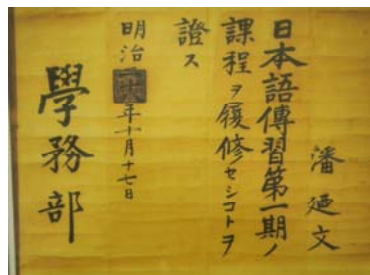 潘迺文
日本語傳習第一期ノ
課程ヲ履修セシコトヲ
證ス
明治二十八年十月十七日
學務部